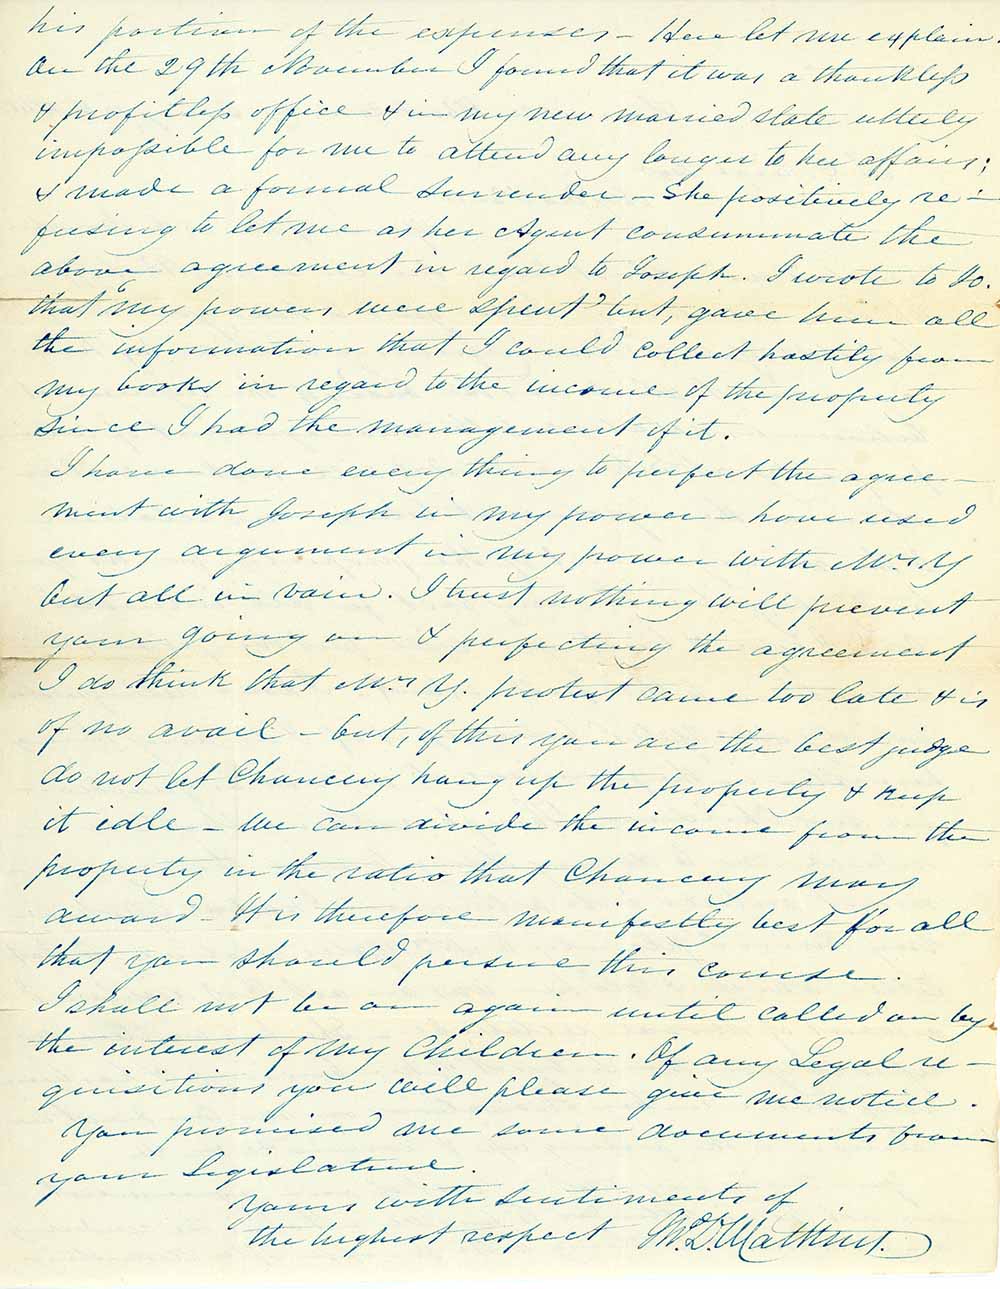 his portion of the expenses - Here let me explain.
On the 29th November I found that it was a thankless
& profitless office & in my new married state utterly
impossible for me to attend any longer to her affairs;
& made a formal surrender - She positively re-
fusing to let me as her Agent consummate the
above agreement in regard to Joseph. I wrote to Jo.
that "my powers were spent" but, gave him all
the information that I could collect hastily from
my books in regard to the income of the property
since I had the management of it.
I have done every thing to perfect the agree-
ment with Joseph in my power - have used
every argument in my power with Mrs Y
but all in vain. I trust nothing will prevent
your going on & perfecting the agreement
I do think that Mrs Y. protest came too late & is
of no avail - but, of this you are the best judge
do not let Chancery hang up the property & keep
it idle - We can divide the income from the
property in the ratio that Chancery may
award - It is therefore manifestly best for all
that you should persue this course.
I shall not be on again until called on by
the interest of my Children. Of any Legal re-
quisitions you will please give me notice.
You promised me some documents from
your Legislature.
Yours with sentiments of
the highest respect